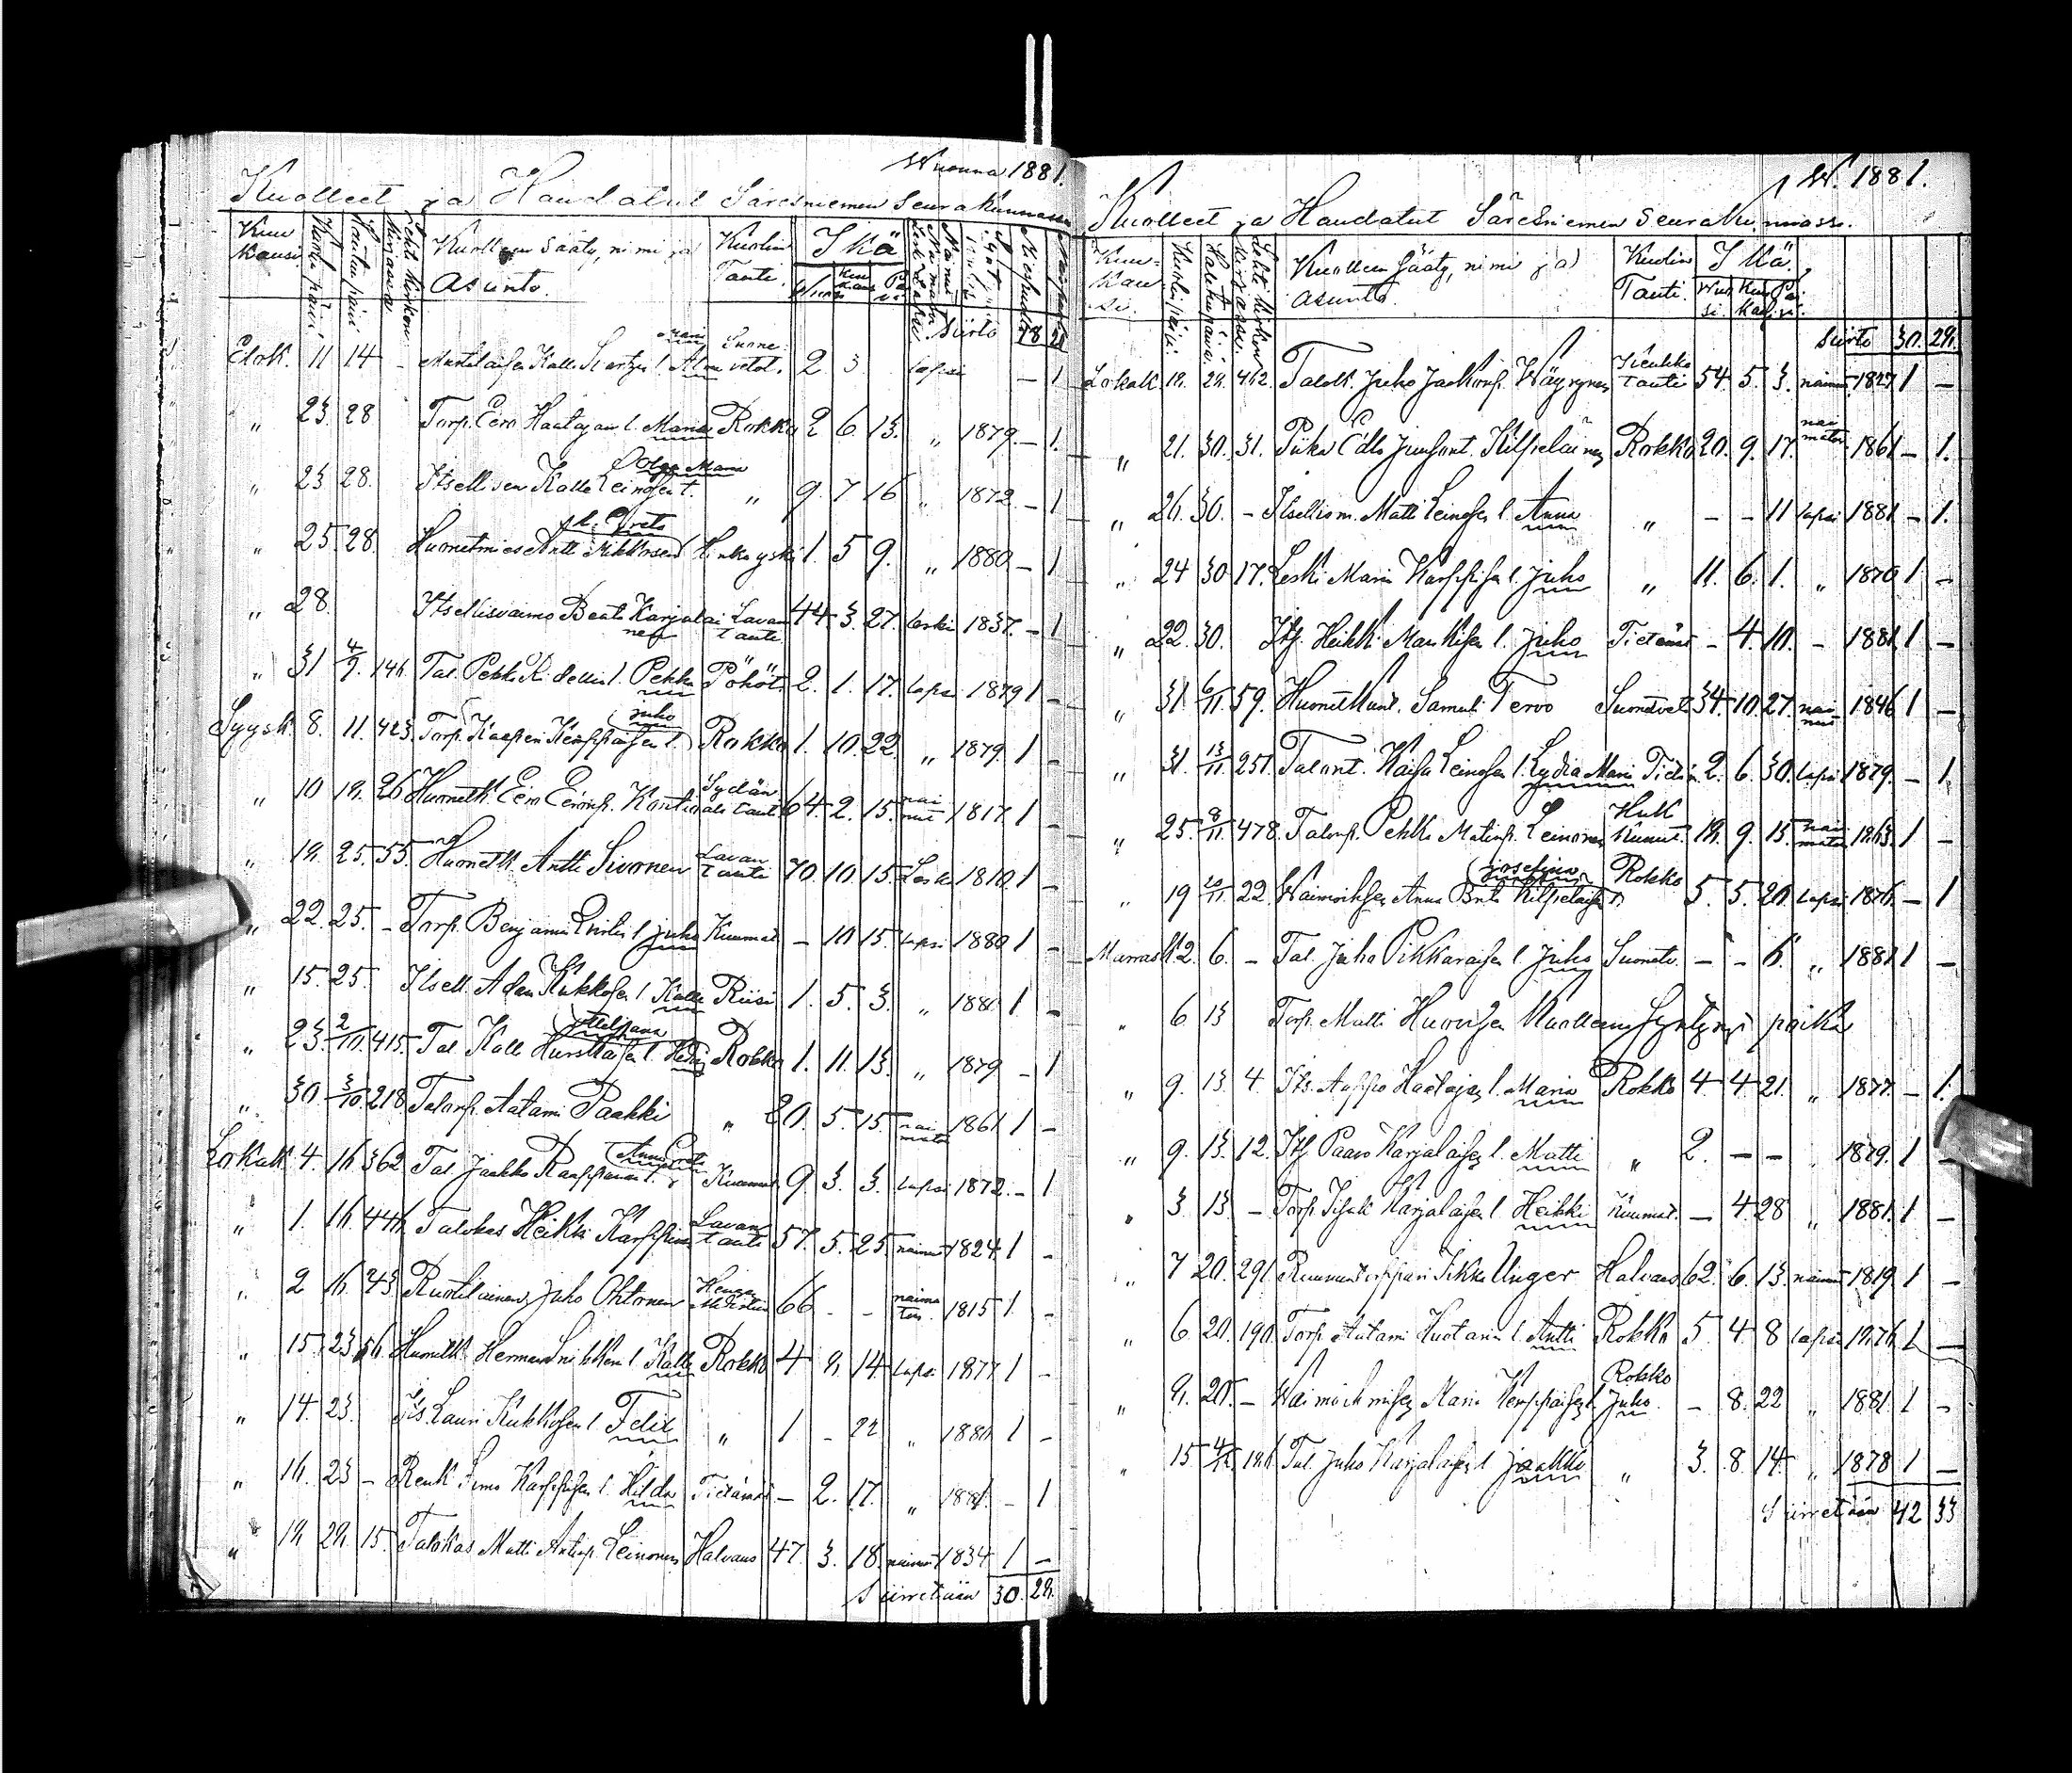 Wuonna 1881.
Kuolleet ja Haudatut Säresniemen Seurakunnassa
Kuu kausi Kuolin päivä Hautaus päivä Lehti kirkon kirjassa Kuolleen Sääty, nimi ja Asunto. Kuolin Tauti. Ikä Wuosi Kuu kausi Päi vä
Siirto 18 28
Elok. 11 14 - Kalle l. Alma Maria Suone vetot. 2 3 lapsi - 1
" 23 28 Torp. Eero Haatajan l. Maria Rokko 2 6 13. " 1879 - 1.
" 23 28. Itsellisen Kalle Leinosen t. Olga Maria " 9 7 16 " 1872 - 1
" 25. 28 Huonemies Antti Mikkosen l. Greta Hinkuyskä 1. 5 9. " 1880 - 1
" 28. Itsellisvaimo Beata Karjalainen Lavan tauti 44. 3. 27. Leski 1837. - 1
" 31 4/9. 146 Tal. Pekka l. Pekka Pöhöt. 2. 1. 17. lapsi 1879 1
Syysk. 8. 11. 423. Torp. Kaspen Keräpäisen l. Juho Rokko 1. 10. 22 " 1879. 1 -
" 10 18. 26 Huonetk. Eero Eeronp. Sydän ala tauti 64. 2. 15. nai nut 1817. 1 -
" 18. 25. 55. Huonetk. Antti Sivonen Lavan tauti 70. 10. 15. Leski 1810. 1 -
" 22. 25. - Torp. Benjami l. Juho Kuumat. - 10 15. lapsi 1880 1 -
" 15. 25. Itsell. Adam Kukkosen l. Kalle Riisi 1. 5. 3. " 1880 1 -
" 23. 2/10. 415. Tal. Kalle Hurskaisen l. Rokko 1. 11. 13. " 1879 - 1
" 30 3/10. 218 Talonp. Aatami Paakki " 20. 5. 15. nai maton 1861 1 -
Lokak. 4. 16 362 Tal. Jaakko l. Anna Kuumat 9. 3. 3. lapsi 1872. - 1
" 1. 16. 446 Talokas Heikki Karppinen Lavan tauti 57. 5. 25. nainut 1824. 1 -
" 2 16. 243 Ruotilainen Juho Ohtonen 66 - - naima ton. 1815 1. -
" 15. 23 56. Huonetk. Herman l. Kalle Rokko 4 8. 14. lapsi 1877 1 -
" 14. 23. Its. Lauri Kukkosen l. Felix " 1 - 22 " 1880 1 -
" 16. 23 - Renk. Simo Karppisen l. Hilda Tietämät. - 2. 17. " 1881. - 1
" 18 28. 15. Talokas Matti Antinp. Leinonen Halvaus 47. 3. 18. nainut 1834 1 -
Siirretään 30. 28.
W. 1881.
Kuolleet ja Haudatut Säresniemen Seurakunnassa.
Kuu- kau si. Kuolin päivä. Hautaus päivä. Lehti kirkon kirjassa. Kuolleen Sääty, nimi ja asunto. Kuolin Tauti. Ikä. Wuo si. Kuu kau. Päi vä.
Siirto 30. 28.
Lokak. 18. 28. 462. Talok. Juho Jaakonp. Wäyrynen Keuhko tauti 54. 5. 3. nainut 1827 1 -
" 21. 30. 31. Piika Kilpeläinen Rokko 20. 9. 17. nai maton 1861 - 1.
" 26. 30. - Itsellism. Matti Leinosen l. Anna " - - 11 lapsi 1881 - 1.
" 24 30 17. Leski Maria Karppisen l. Juho " 11. 6. 1. " 1870 1 -
" 22. 30. Its. Heikki l. Juho Tietämät - 4. 10. - 1881 1 -
" 31. 6/11. 59. Huonetkunt. Samuli Tervo Suonevet. 34. 10. 27. nai nut 1846 1 -
" 31. 13/11. 251. Talont. Kaisa Leinosen l. Lydia Maria Tietäm. 2. 6. 30. lapsi 1879. - 1.
" 25. 8/11. 478. Talonp. Pekka Matinp. Leinonen Huk kunut. 18. 9. 15. nai maton 1863. 1 -
" 19 20/11. 22. Waimoihsen Anna Brita Kilpeläisen t. Josefina Rokko 5. 5. 20. lapsi 1876. - 1
Marrask. 2. 6. - Tal. Juho Pikkaraisen l. Juho Suonetv. - - 6. " 1881. 1 -
" 6 13 Torp. Matti Huovisen Kuolleena syntynyt poika
" 9. 13. 4 Its. Aappo Haatajan l. Maria Rokko 4. 4. 21. " 1877. - 1.
" 9. 13. 12. Its. Paavo Karjalaisen l. Matti " 2. - - " 1879. 1 -
" 3 13. - Torp. Isak Karjalaisen l. Heikki Kuumat. - 4. 28 " 1881. 1 -
" 7 20. 291. Unger Halvaus 62. 6. 13. nainut 1819. 1 -
" 6. 20. 190. Torp. Aatami Huotarin l. Antti Rokko 5. 4. 8 lapsi 1876. 1 -
" 8. 20. - Maria Keräpäisen l. Juho Rokko - 8. 22 " 1881. 1 -
" 15. 4/12. 186. Tal. Juho Karjalaisen l. Jaakko " 3. 8. 14. " 1878 1 -
Siirretään 42 33